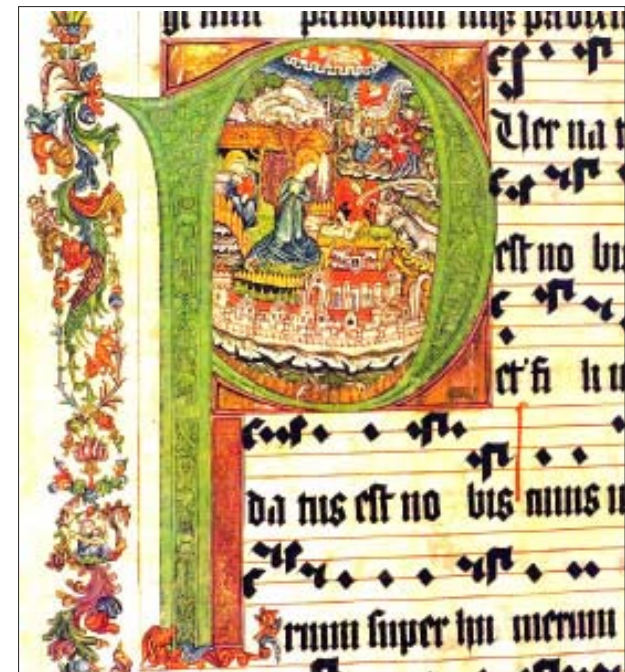 PUer na t
est no bis
et fi li u
da tus est no bis cuius i
rium super hu merum